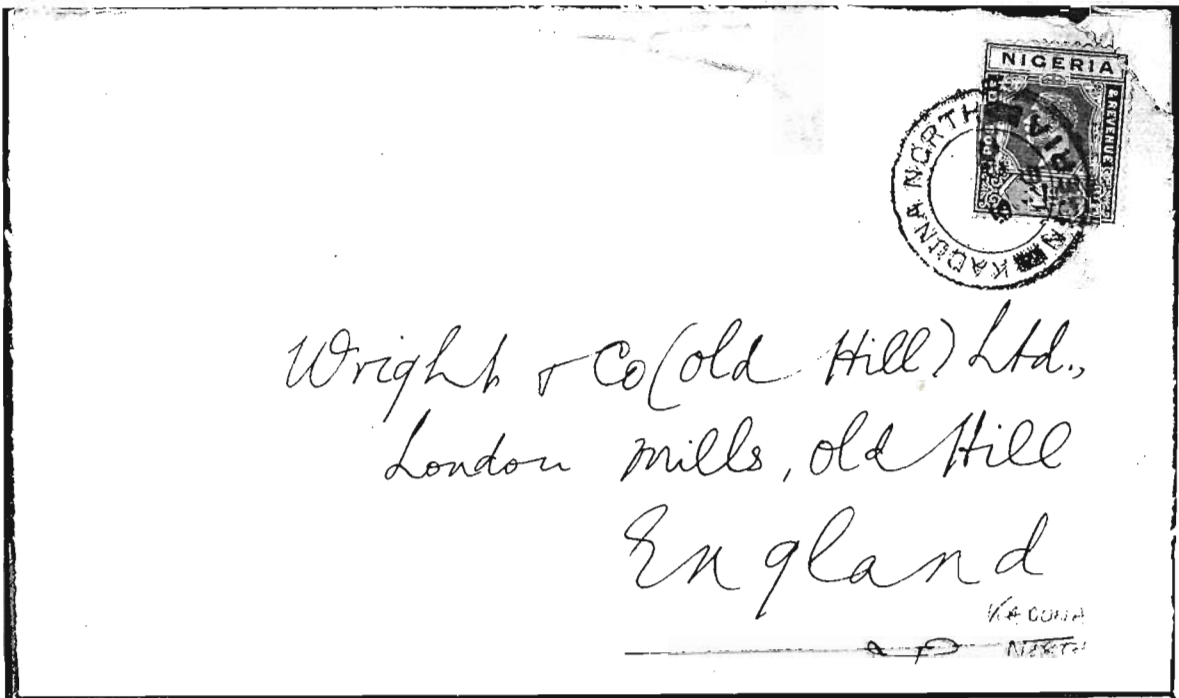 NIGERIA
& REVENUE
KADUNA NORTH
Wright & Co (Old Hill) Ltd.,
London Mills, Old Hill
England
KADUNA
NORTH